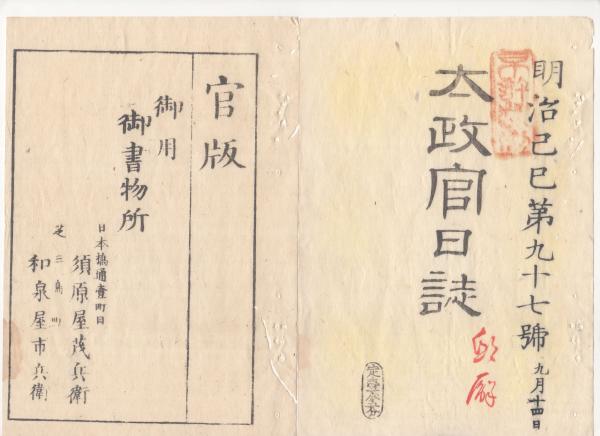 明治己巳第九十七號 九月十四日
太政官日誌
官版
御用
御書物所
日本橋通壹町目
須原屋茂兵衛
芝三島町
和泉屋市兵衛